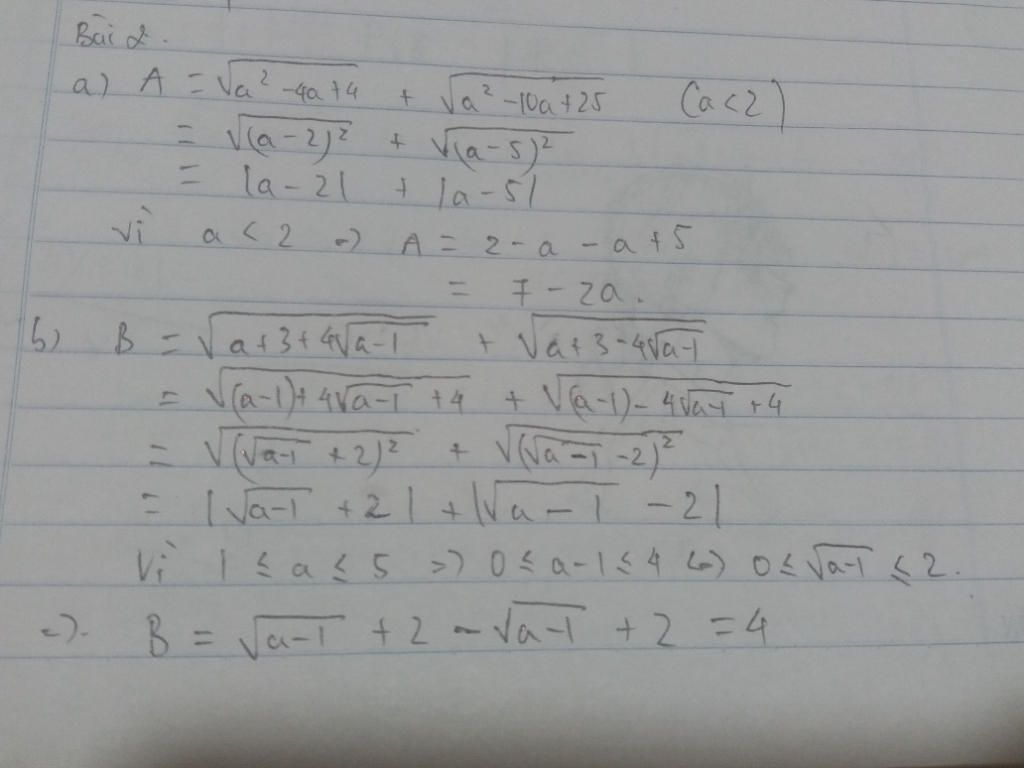 Bài 2.
a) A = √(a² - 4a + 4) + √(a² - 10a + 25) (a < 2)
= √((a - 2)²) + √((a - 5)²)
= |a - 2| + |a - 5|
Vì a < 2 => A = 2 - a - a + 5
= 7 - 2a.
b) B = √(a + 3 + 4√(a-1)) + √(a + 3 - 4√(a-1))
= √((a-1) + 4√(a-1) + 4) + √((a-1) - 4√(a-1) + 4)
= √((√(a-1) + 2)²) + √((√(a-1) - 2)²)
= |√(a-1) + 2| + |√(a-1) - 2|
Vì 1 ≤ a ≤ 5 => 0 ≤ a-1 ≤ 4 <=> 0 ≤ √(a-1) ≤ 2.
=>. B = √(a-1) + 2 - √(a-1) + 2 = 4